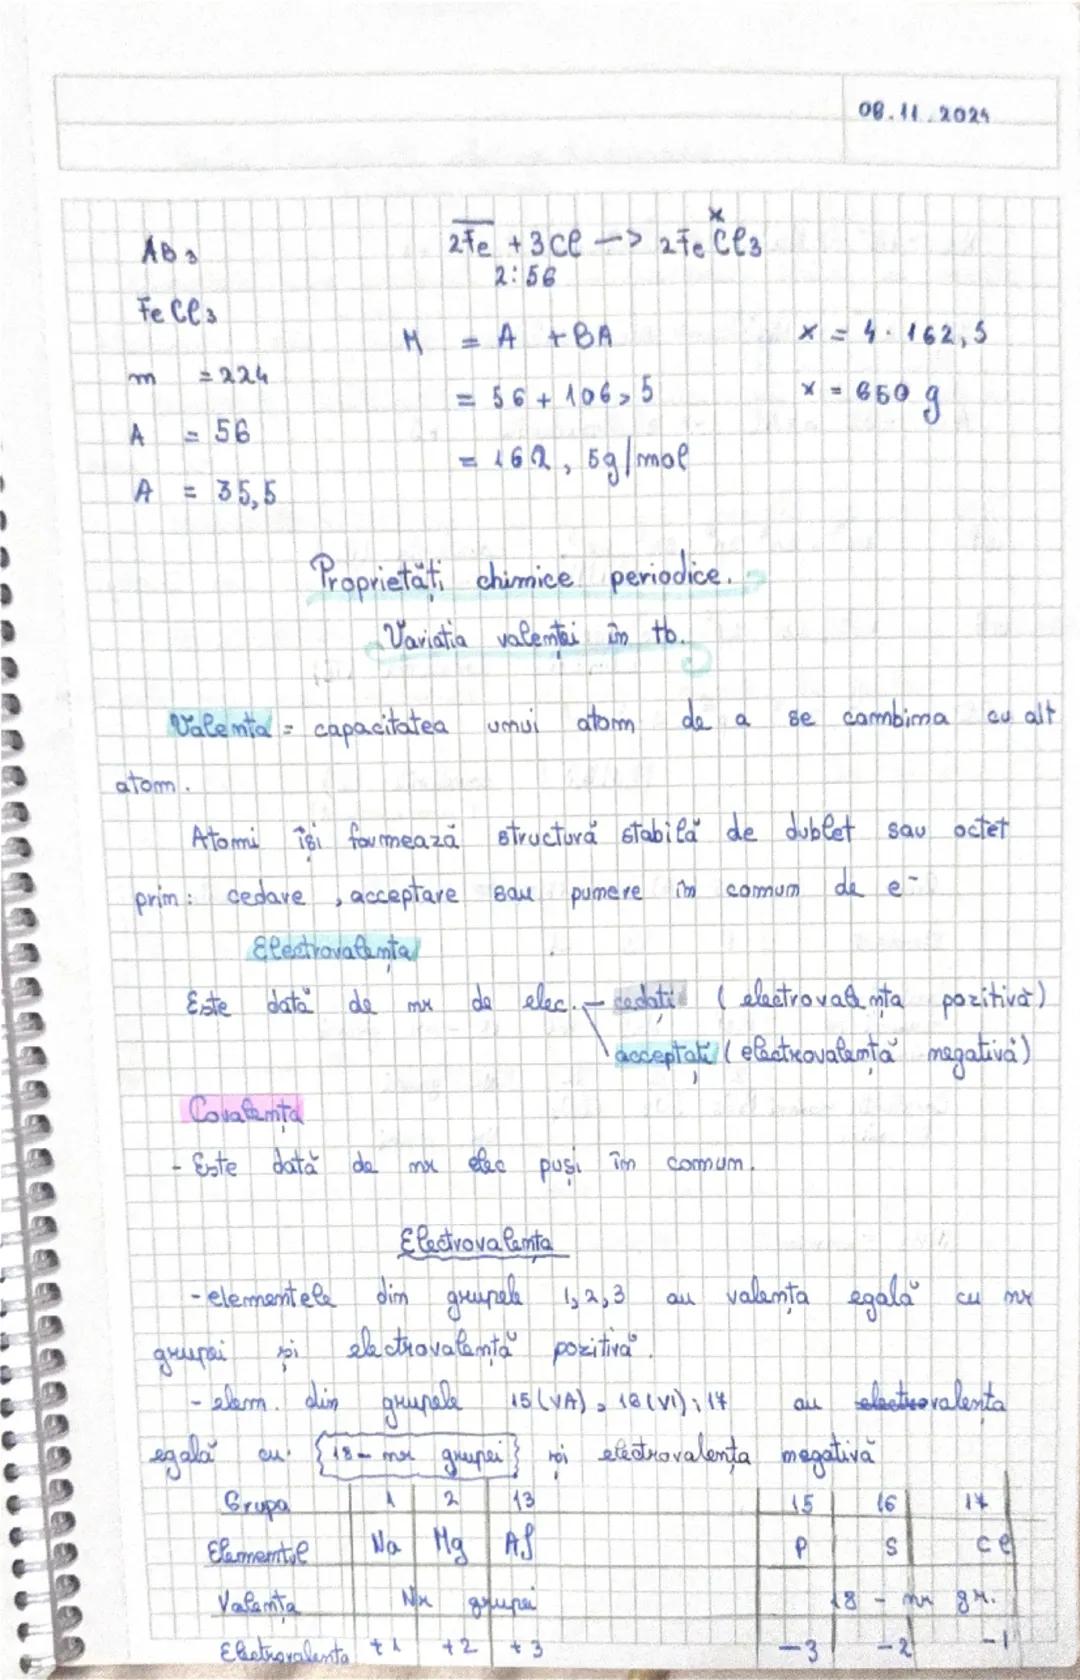 08.11.2024
AB3
2Fe + 3Cl -> 2FeCl3
x
2:56
FeCl3
M = A + BA
x = 4·162,5
m = 224
= 56 + 106,5
x = 650 g
A = 56
= 162,5g/mol
A = 35,5
Proprietăți chimice periodice.
Variatia valenței în tb.
Valența = capacitatea unui atom de a se combina cu alt
atom.
Atomi își formează structură stabilă de dublet sau octet
prin: cedare, acceptare sau punere în comun de e⁻
Electrovalența
Este dată de nr de elec. – cedați (electrovalența pozitivă)
acceptați (electrovalență negativă)
Covalența
- Este dată de nr elec puși în comun.
Electrovalența
- elementele din grupele 1, 2, 3 au valența egală cu nr
grupei și electrovalență pozitivă.
- elem. din grupele 15 (VA), 16 (VI); 17 au valența
egală cu {18 - nr grupei} și electrovalența negativă
Grupa 1 2 13 15 16 17
Elementul Na Mg Al P S Cl
Valența Nr grupei 18 - nr gr.
Electrovalența +1 +2 +3 -3 -2 -1